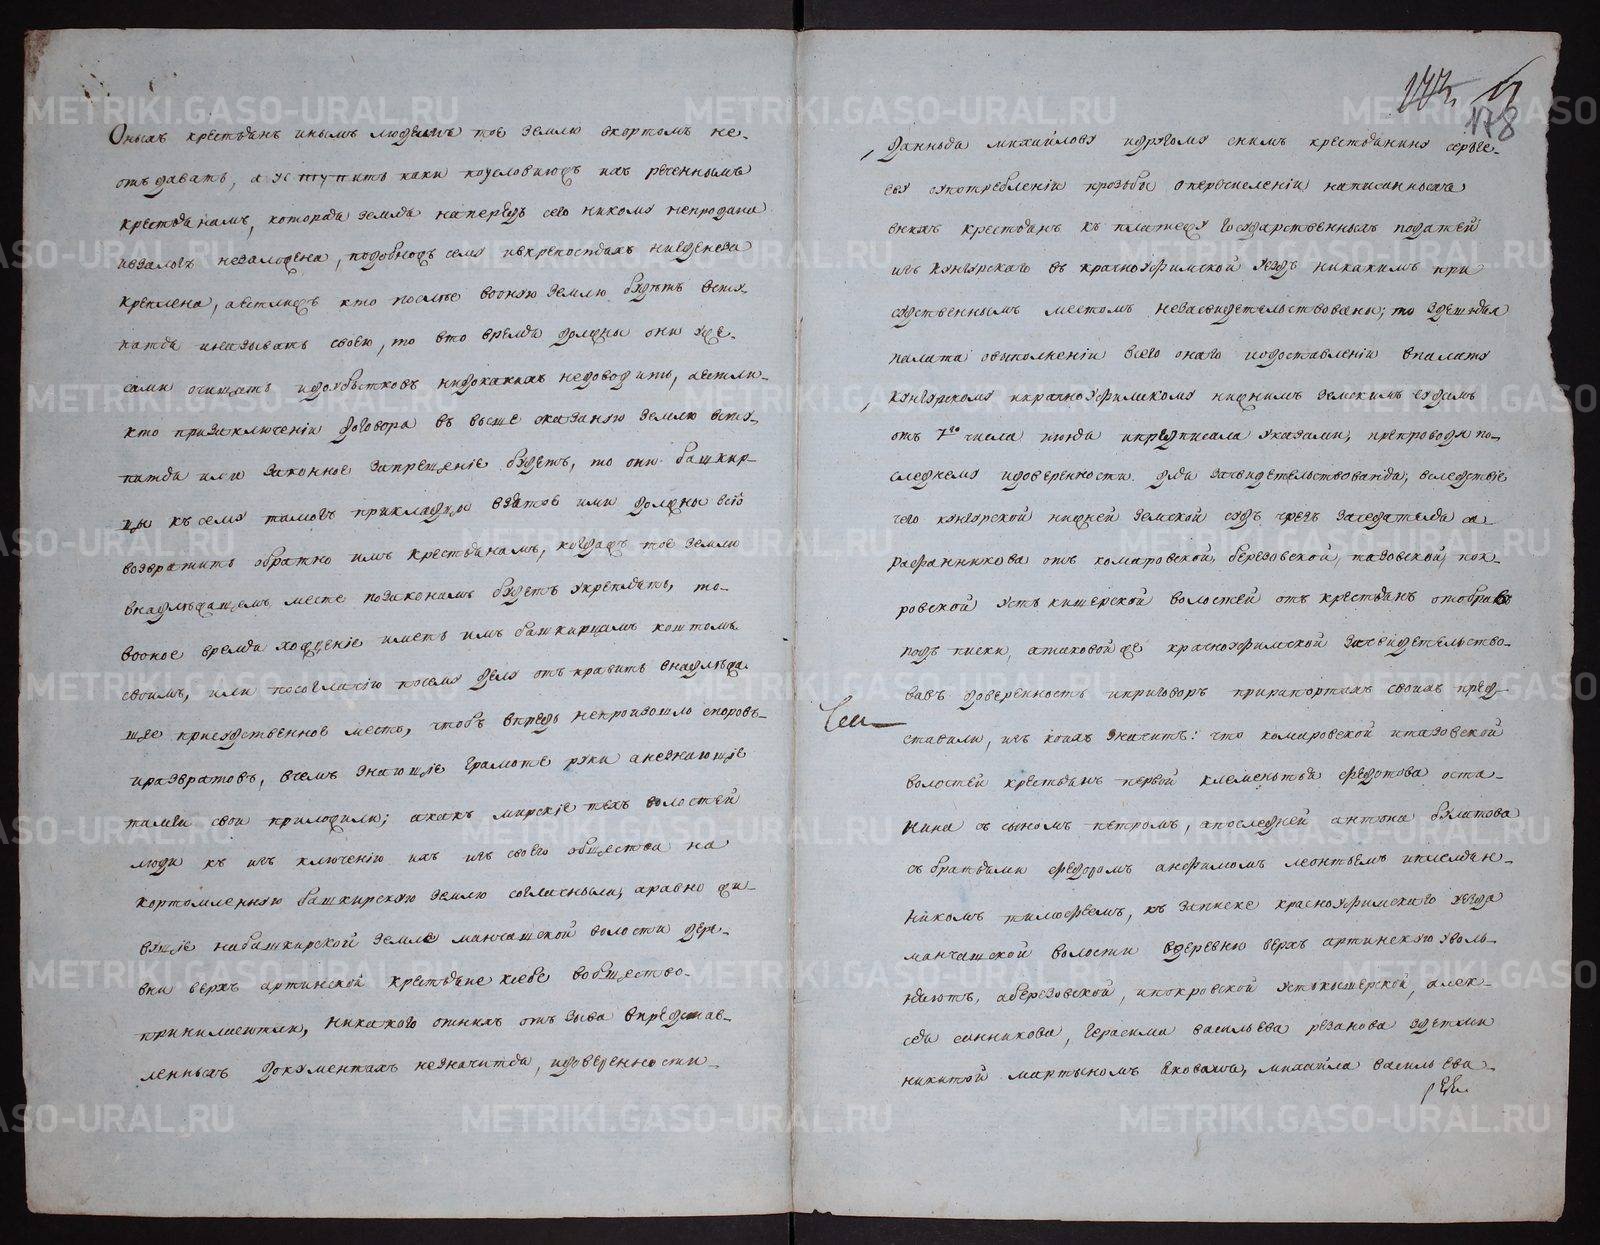 Оныхъ крестьянъ инымъ людямъ тое землю вкортомъ не-
отъдавать, а уступить каки поусловиютъ имъ реченнымъ
крестьянамъ, которая земля напередъ сего никому непродана
изалогъ незаложена, подобножъ сему ивкрепостяхъ нигденеза
креплена, аестлижъ кто после воную землю будетъ всту-
патца иназывать своею, то вто время должны они уже-
сами очищать идоубытковъ нидокакихъ недоводить, аестли-
кто призаключении договора въ выше сказаную землю всту-
патца или законное запрещение будетъ, то они башкир-
цы къ сему тамогъ прикладца взятое ими должны всю
возвратить обратно имъ крестьянамъ, когдажъ тое землю
внадлежащемъ месте позаконамъ будетъ укреплять, то-
вооное время хождение иметь имъ башкирцамъ коштомъ
своимъ, или посогласию посему делу отъправить внадлежа
щее присудственное место, чтобъ впредь непроизошло споровъ-
иразвратовъ, вчемъ знающие грамоте руки анезнающие
тамги свои приложили; акакъ мирские техъ волостей
люди къ изъ ключению ихъ изъ своего общества на
кортомленную башкирскую землю согласными, аравно жи-
вущие набашкирской земле манчажской волости дере-
вни верхъ артинской крестьяне ксебе вобщество-
принимаютли, никакого отнихъ отъзыва впредстав-
ленныхъ документахъ незначитца, идоверенности-
178
Данныя михайлову идругому снимъ крестьянину сергее-
ву оупотреблении прозьбы оперечислении написанныхъ
внихъ крестьянъ къ платежу государственныхъ податей
изъ кунгурскаго въ красноуфимской уездъ никакимъ при
судственнымъ местомъ незасвидетельствованы; то здешняя
палата овыполнении всего онаго идоставлении впалату
кунгурскому икрасноуфимскому нижнимъ земскимъ судамъ
отъ 7го числа июля ипредписала указами, препроводя по-
следнему идоверенности для засвидетельствования; вследствие
чего кунгурской нижней земской судъ чрезъ заседателя са
рафанникова отъ комаровской, березовской, тазовской, пок-
ровской усть кишерской волостей отъ крестьянъ отобравъ
подъ писки, атаковой же красноуфимской засвидетельство-
вавъ доверенность иприговоръ прирапортахъ своихъ пред-
ставили, изъ коихъ значитъ: что комаровской итазовской
волостей крестьянъ первой клементья федотова оста-
нина съ сыномъ петромъ, апоследней антона булатова
съ братьями федоромъ анфимомъ леонтьемъ иплемян-
никомъ тимофеемъ, къ записке красноуфимскаго уезда
манчажской волости вдеревню верхъ артинскую уволь-
няютъ, аберезовской, ипокровской устькишерской, алек-
сея санникова, герасима васильева резанова здетьми
никитой мартыномъ яковомъ, михайла васильева-